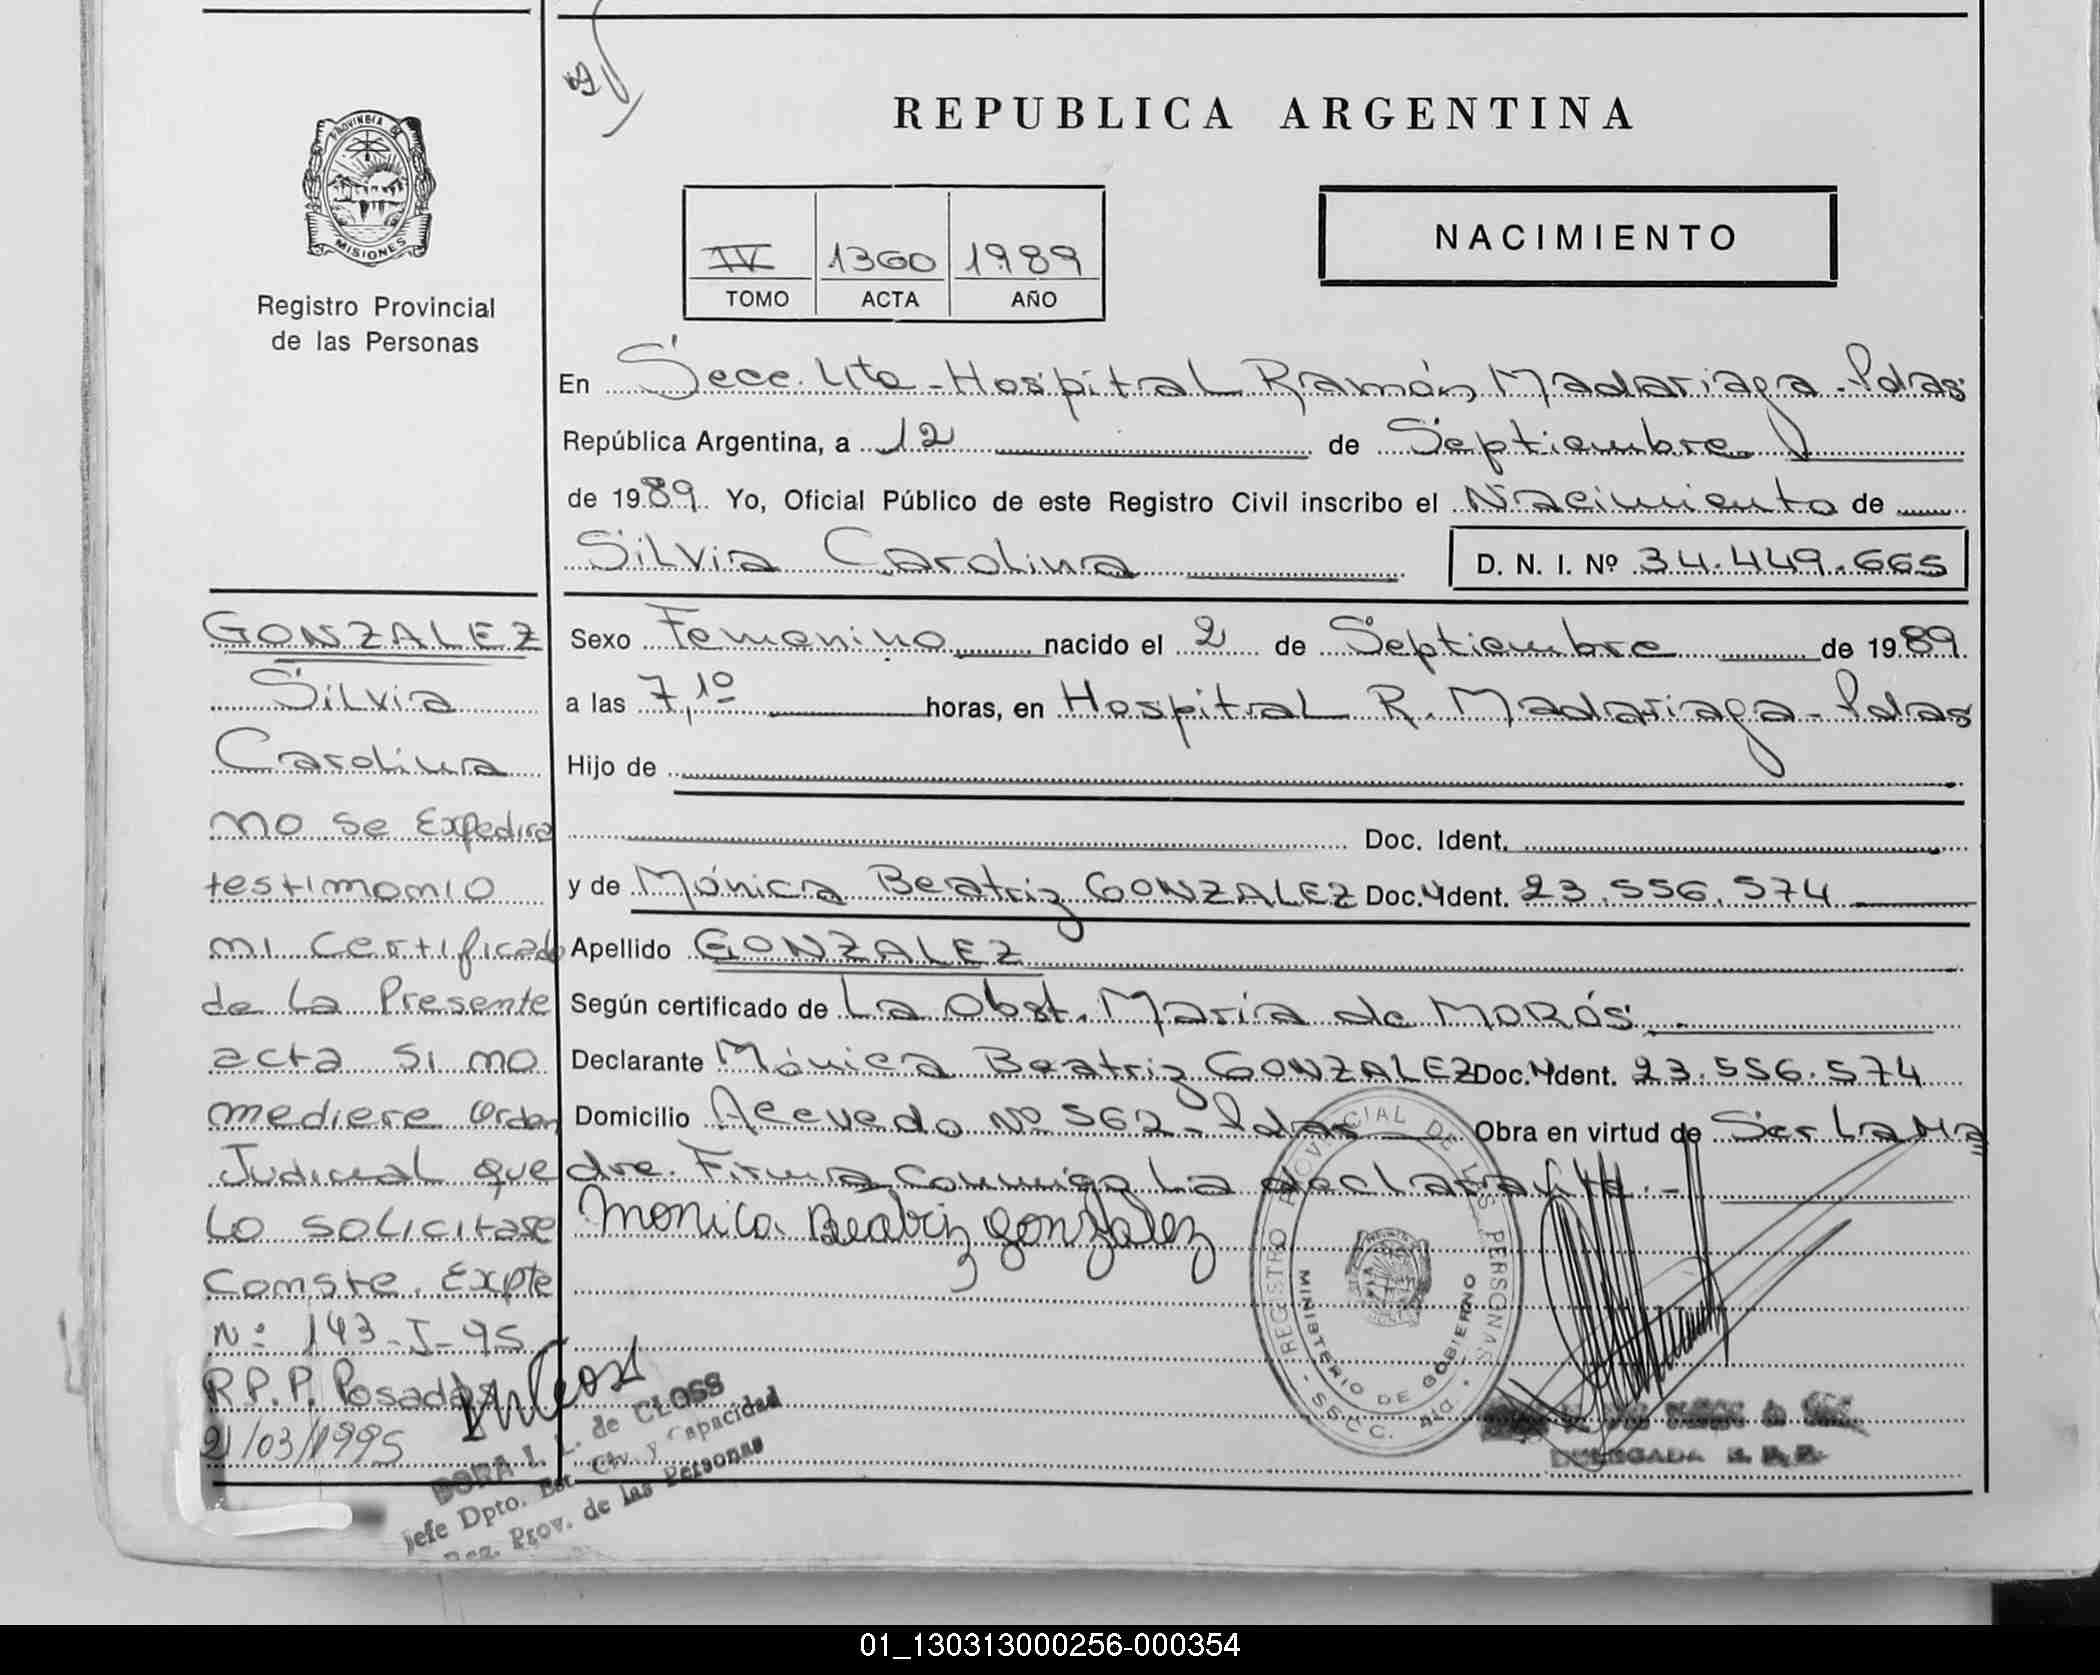 REPUBLICA ARGENTINA
PROVINCIA DE
MISIONES
Registro Provincial
de las Personas
NACIMIENTO
IV 1360 1989
TOMO ACTA AÑO
En Secc. 4ta - Hospital Ramón Madariaga - Pdas
República Argentina, a 12 de Septiembre
de 1989. Yo, Oficial Público de este Registro Civil inscribo el Nacimiento de
Silvia Carolina
D. N. I. Nº 34.449.665
Sexo Femenino nacido el 2 de Septiembre de 1989.
a las 7,10 horas, en Hospital R. Madariaga - Pdas
Hijo de
Doc. Ident.
y de Mónica Beatriz GONZALEZ Doc. Ident. 23.556.574
Apellido GONZALEZ
Según certificado de La Obst. María de MORÓS.
Declarante Mónica Beatriz GONZALEZ Doc. Ident. 23.556.574
Domicilio Acevedo Nº 562 - Pdas Obra en virtud de Ser La Ma
dre. Firma Conmigo La declarante. -
Monica Beatriz gonzalez
GONZALEZ
Silvia
Carolina
no se Expedira
testimonio
ni Certificado
de La Presente
acta si no
mediere Orden
Judicial que
Lo solicitase
Conste. Expte
Nº 143-I-95
R.P.P. Posadas
21/03/1995
DORA I. L. de CLOSS
Jefe Dpto. Est. Civ. y Capacidad
Reg. Prov. de las Personas
REGISTRO PROVINCIAL DE LAS PERSONAS
MINISTERIO DE GOBIERNO
SECC. 4ta
DELEGADA
01_130313000256-000354